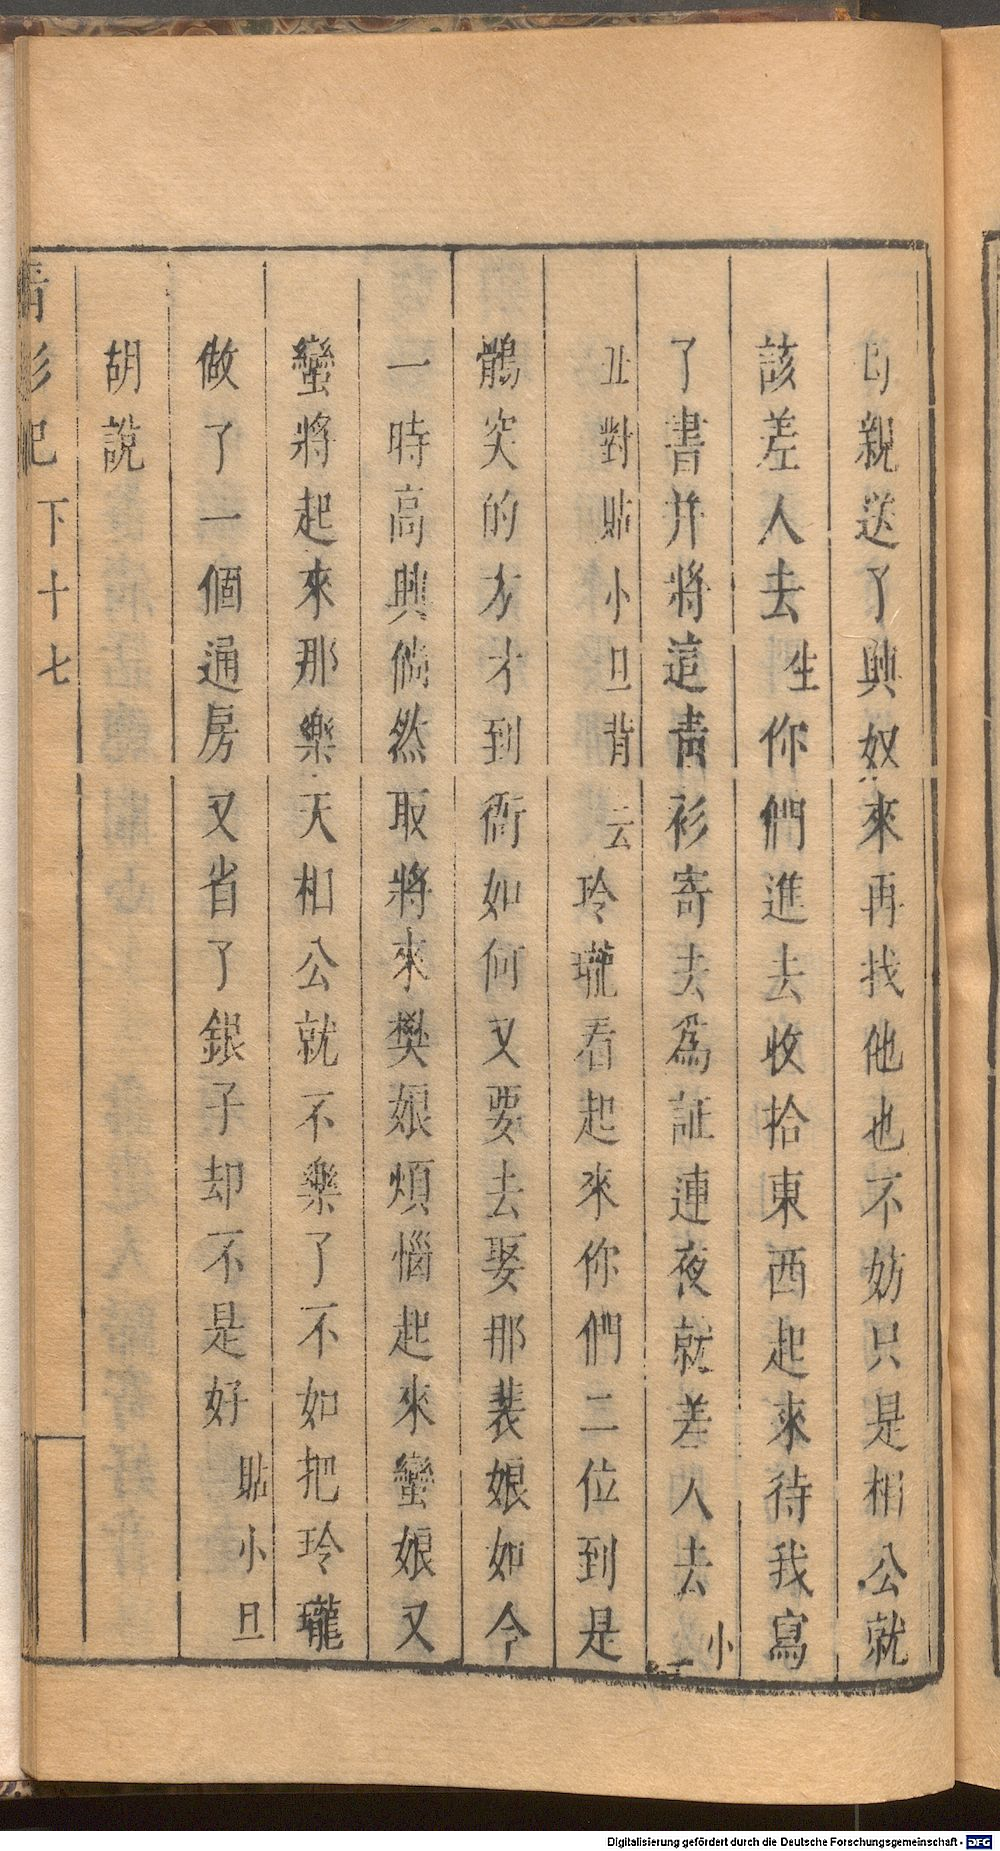 母親送了與奴來再找他也不妨只是相公就
該差人去生你們進去收拾東西起來待我寫
了書并將這青衫寄去為証連夜就差人去小
丑對貼小旦背云玲瓏看起來你們二位到是
鶻突的方才到衙如何又要去娶那裴娘如今
一時高興倘然取將來樊娘煩惱起來蠻娘又
蠻將起來那樂天相公就不樂了不如把玲瓏
做了一個通房又省了銀子却不是好貼小旦
胡說
青衫記 下 十七
Digitalisierung gefördert durch die Deutsche Forschungsgemeinschaft - DFG